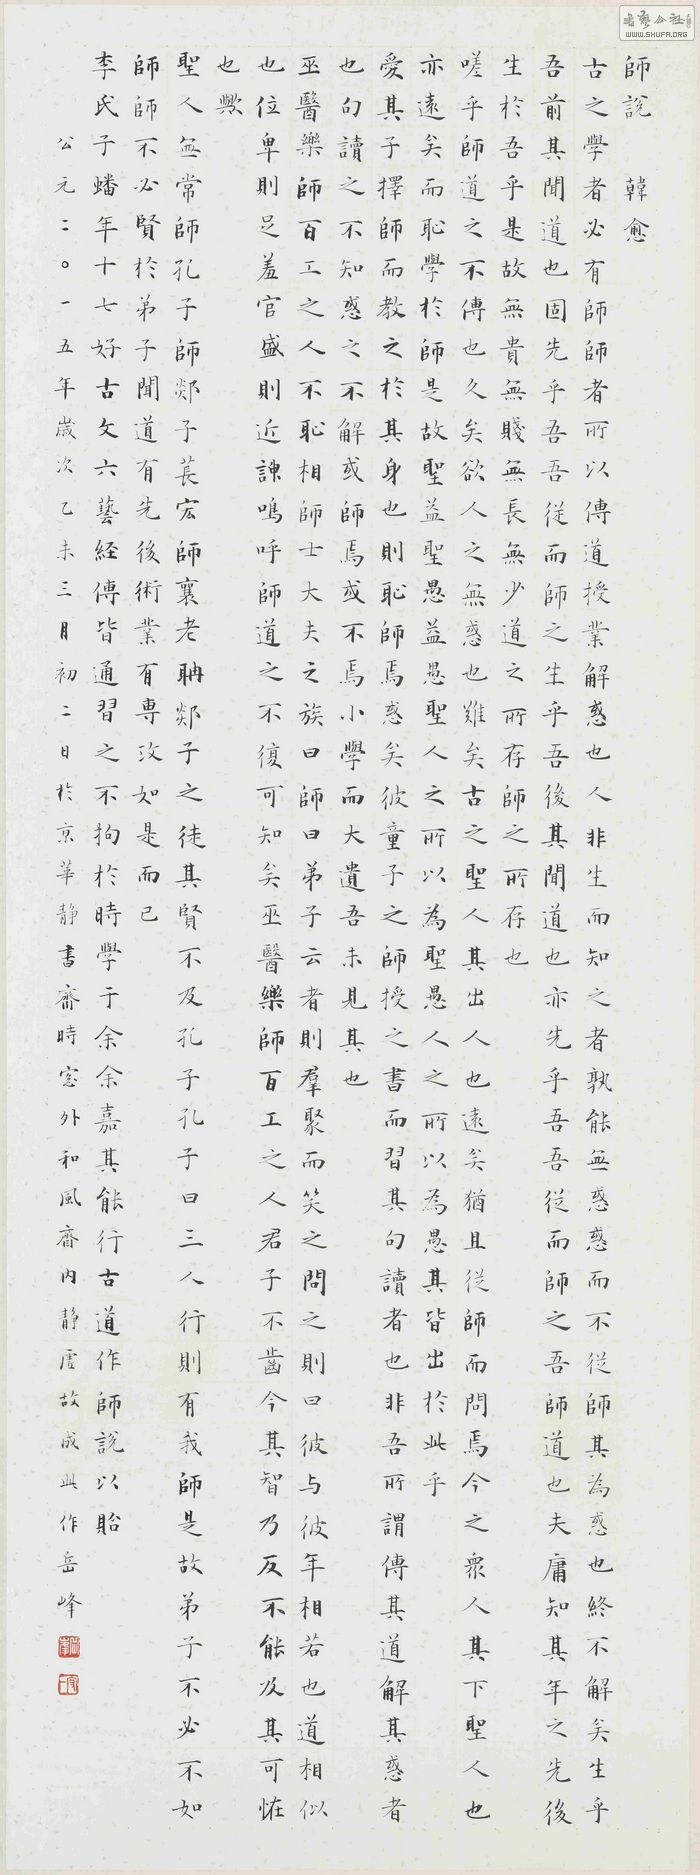 師說 韓愈
古之學者必有師師者所以傳道授業解惑也人非生而知之者孰能無惑惑而不從師其為惑也終不解矣生乎
吾前其聞道也固先乎吾吾從而師之生乎吾後其聞道也亦先乎吾吾從而師之吾師道也夫庸知其年之先後
生於吾乎是故無貴無賤無長無少道之所存師之所存也
嗟乎師道之不傳也久矣欲人之無惑也難矣古之聖人其出人也遠矣猶且從師而問焉今之衆人其下聖人也
亦遠矣而恥學於師是故聖益聖愚益愚聖人之所以為聖愚人之所以為愚其皆出於此乎
愛其子擇師而教之於其身也則恥師焉惑矣彼童子之師授之書而習其句讀者也非吾所謂傳其道解其惑者
也句讀之不知惑之不解或師焉或不焉小學而大遺吾未見其也
巫醫樂師百工之人不恥相師士大夫之族曰師曰弟子云者則羣聚而笑之問之則曰彼与彼年相若也道相似
也位卑則足羞官盛則近諛嗚呼師道之不復可知矣巫醫樂師百工之人君子不齒今其智乃反不能及其可恠
也歟
聖人無常師孔子師郯子萇宏師襄老聃郯子之徒其賢不及孔子孔子曰三人行則有我師是故弟子不必不如
師師不必賢於弟子聞道有先後術業有專攻如是而已
李氏子蟠年十七好古文六藝經傳皆通習之不拘於時學于余余嘉其能行古道作師說以貽
公元二〇一五年歲次乙未三月初二日於京華静書齋時窓外和風齋内静虚故成此作岳峰
書藝公社
WWW.SHUFA.ORG